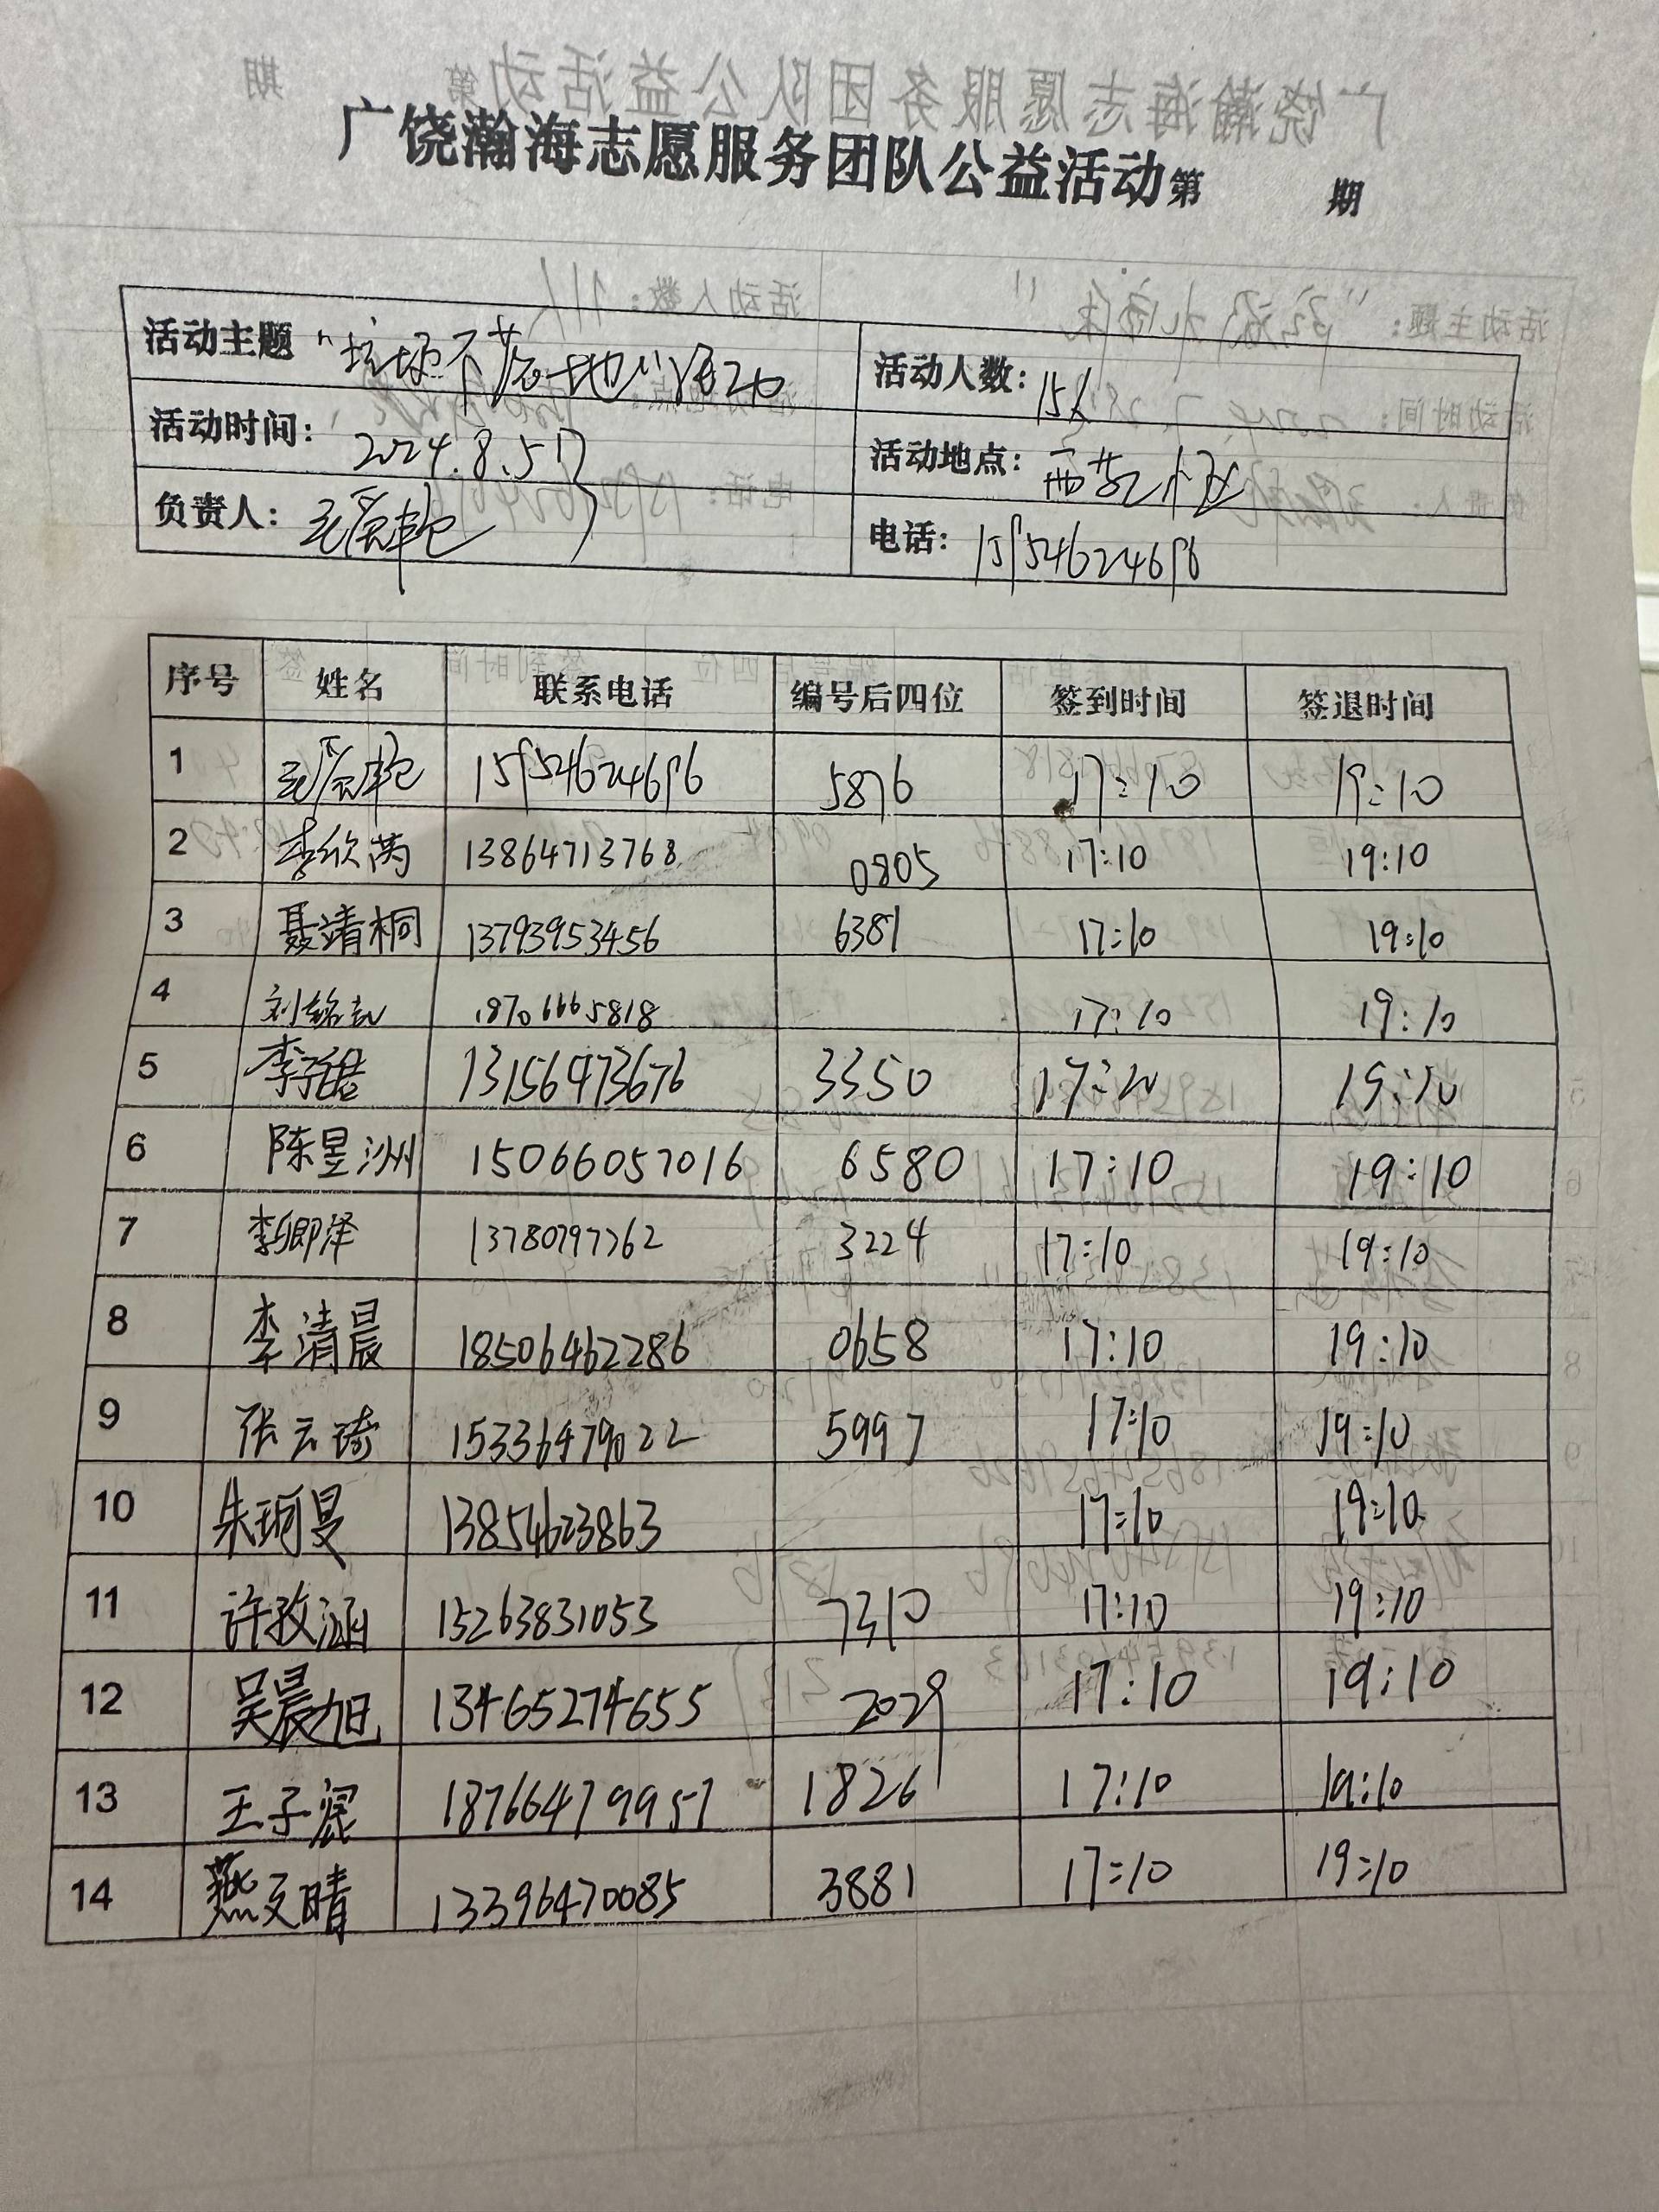 广饶瀚海志愿服务团队公益活动第 期
活动主题 "垃圾不落地"活动 活动人数: 15人
活动时间: 2024.8.5日 活动地点: 西苑小区
负责人: 电话: 15954624696
序号 姓名 联系电话 编号后四位 签到时间 签退时间
1 15954624696 5876 17:10 19:10
2 李欣芮 13864713768 0805 17:10 19:10
3 聂靖桐 13793953456 6381 17:10 19:10
4 刘 18706665818 17:10 19:10
5 李子 13156473676 3350 17:20 19:20
6 陈昱汐州 15066057016 6580 17:10 19:10
7 李卿泽 13780797762 3224 17:10 19:10
8 李清晨 18506462286 0658 17:10 19:10
9 张云琦 15336479022 5997 17:10 19:10
10 朱珂旻 13854623863 17:10 19:10
11 许孜涵 15263831053 7310 17:10 19:10
12 吴晨旭 13465274655 2029 17:10 19:10
13 王子宸 18766479957 1826 17:10 19:10
14 燕文晴 13396470085 3881 17:10 19:10